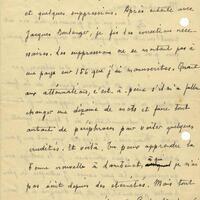 et quelques suppressions. Après entente avec
Jacques Boulanger, je fis des corrections néces-
saires. Les suppressions ne se montent pas à
une page sur 156 que j'ai manuscrites. Quant
aux atténuations, c'est à peine s'il m'a fallu
changer une dizaine de mots et faire tout
autant de périphrases pour voiler quelques
crudités. Et voilà. Tu peux apprendre la
bonne nouvelle à je n'ai
pas écrit depuis des éternités. Mais tout